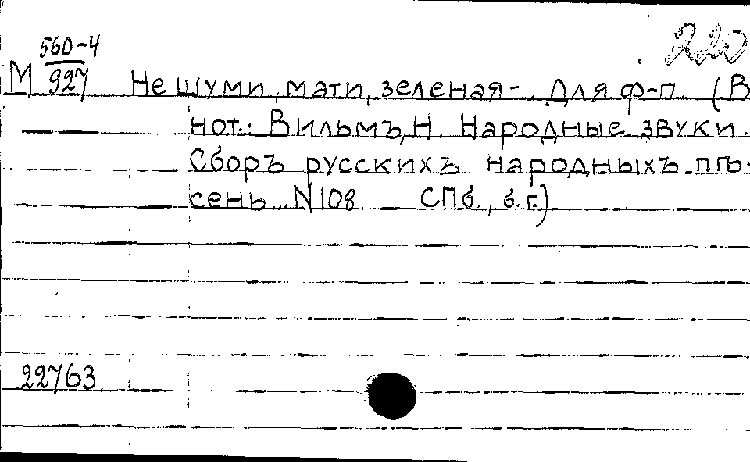 220
560-4
М 927 Не шуми, мати, зеленая - Для ф-п. (В
нот.: Вильмъ, Н. Народные звуки.
Сборъ русскихъ народныхъ пѣ-
сень. N 108 СПб., б.г.)
22763